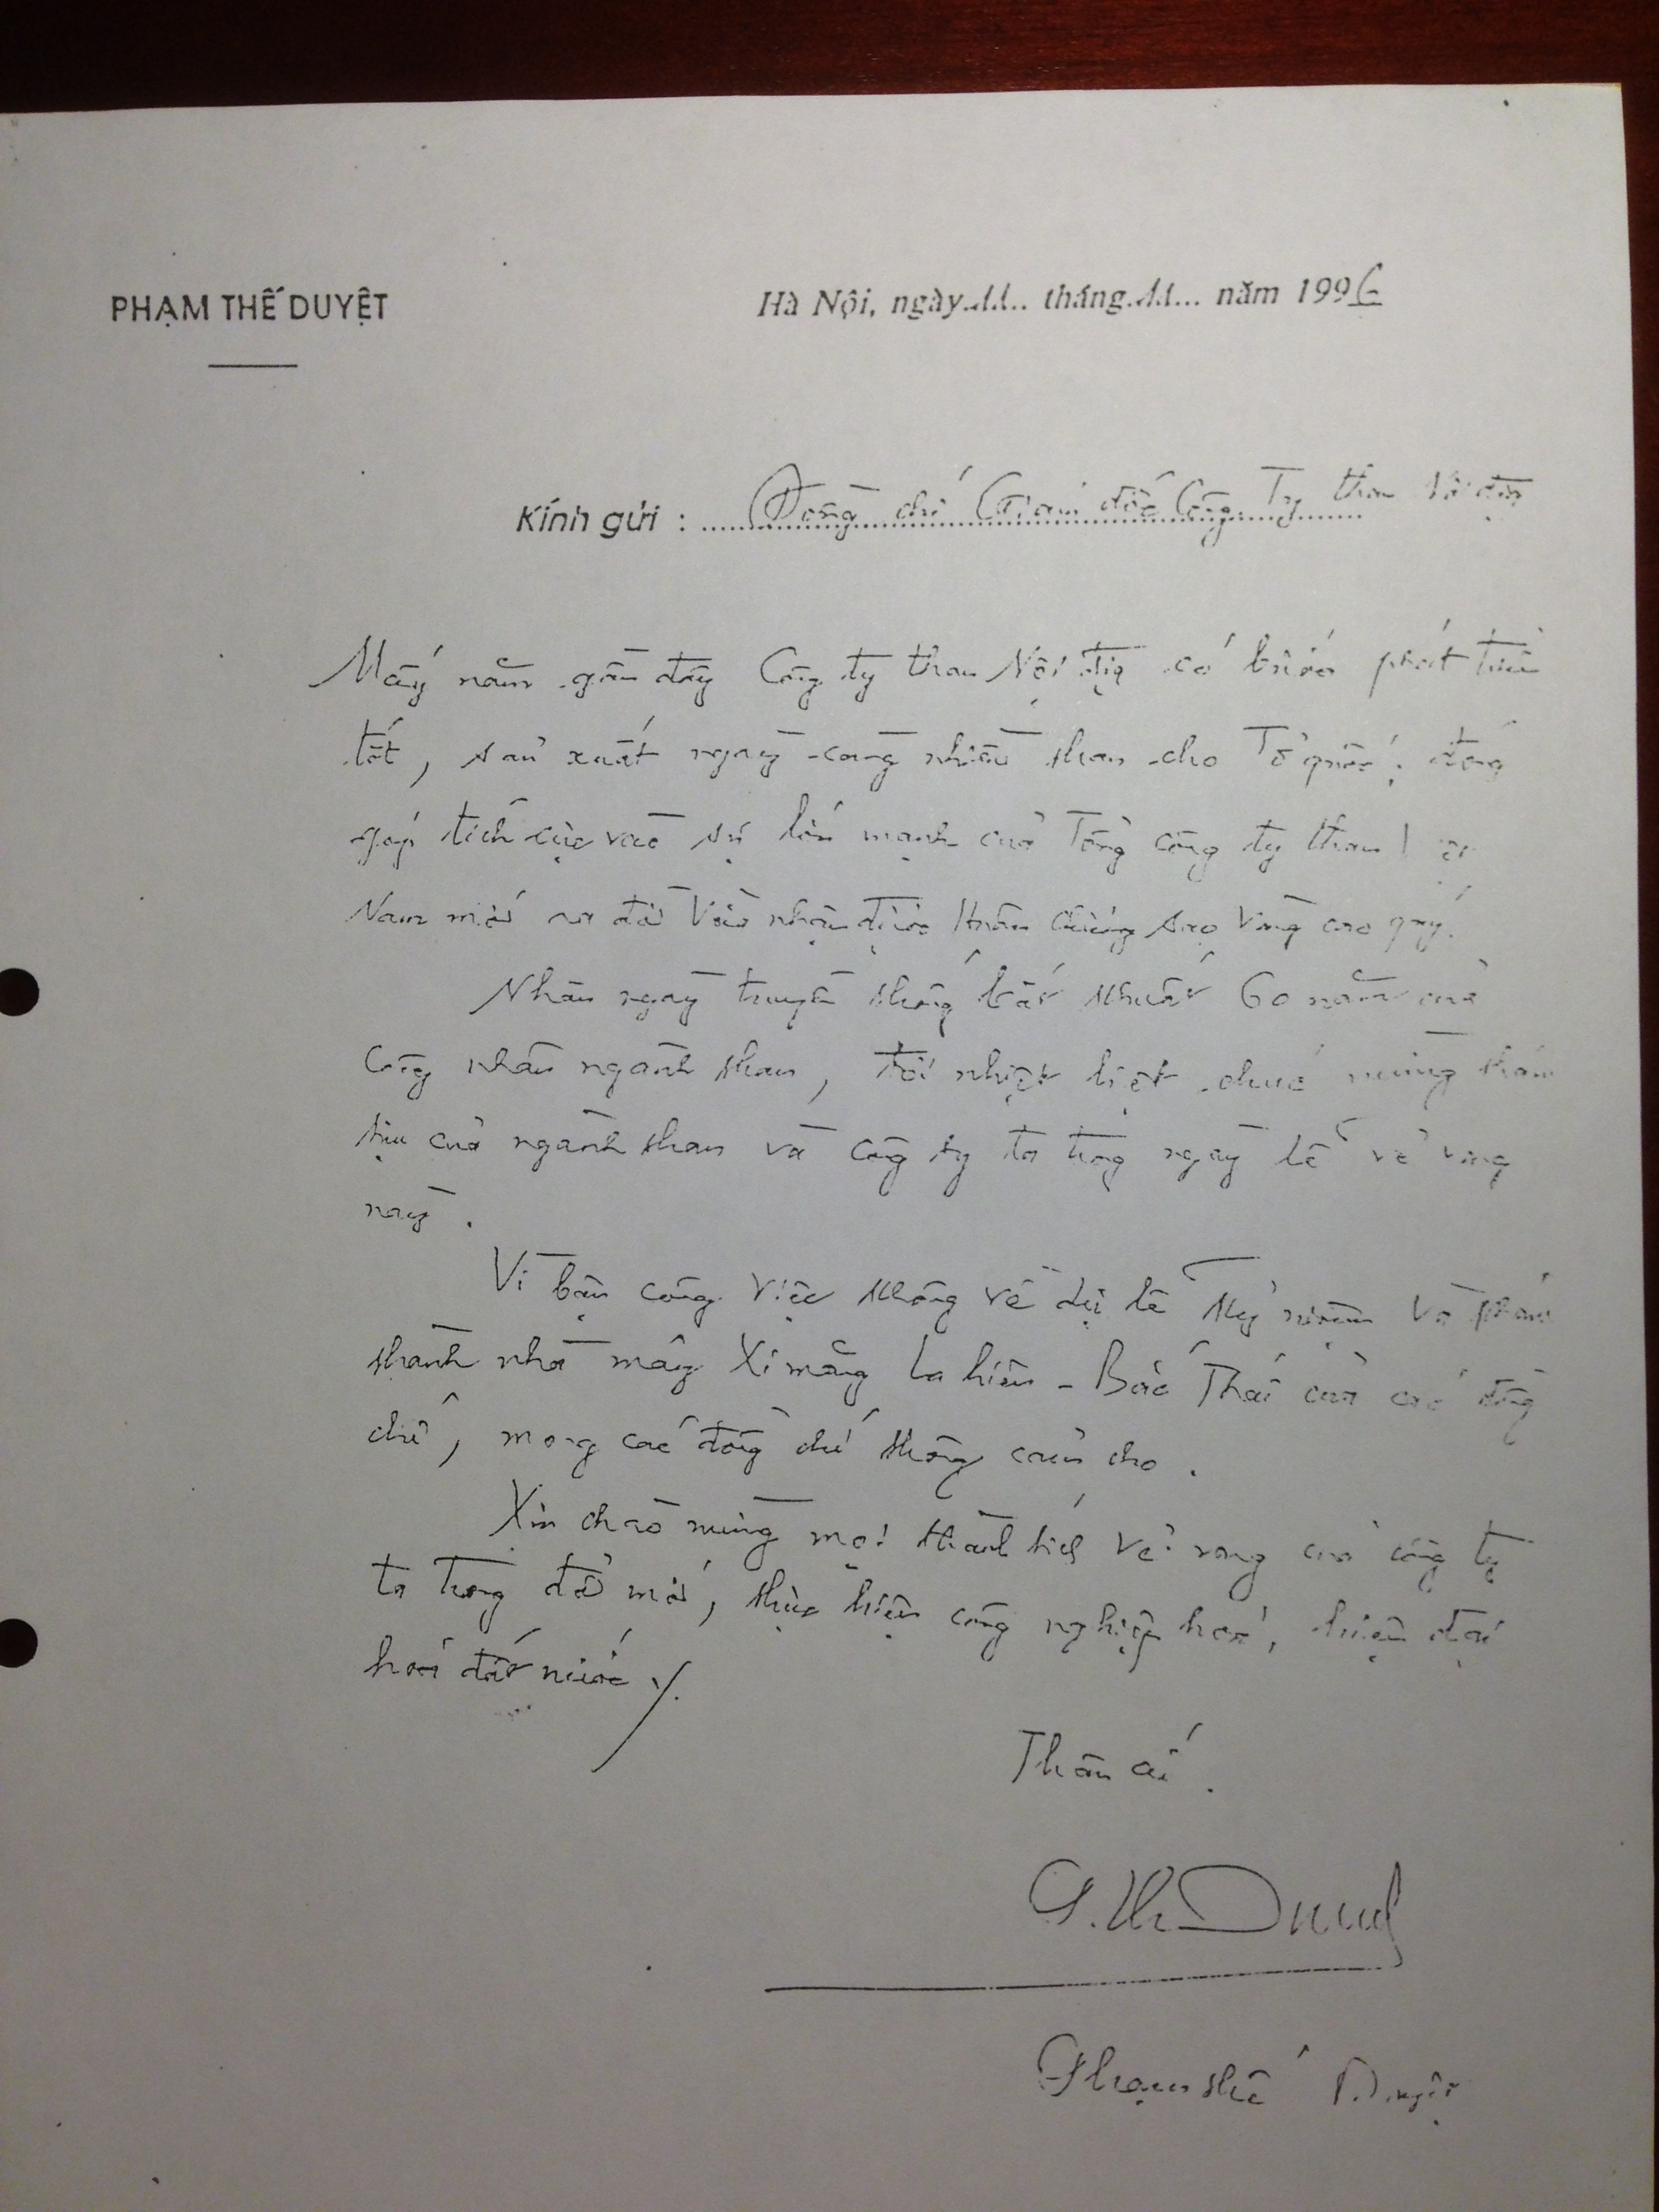 PHẠM THẾ DUYỆT
Hà Nội, ngày 11 tháng 11 năm 1996
Kính gửi : Đồng chí Giám đốc Công Ty than Nội địa
Mấy năm gần đây Công ty than Nội địa có bước phát triển
tốt, sản xuất ngày càng nhiều than cho Tổ quốc; đóng
góp tích cực vào sự lớn mạnh của Tổng công ty than Việt
Nam mới ra đời Vừa nhận được Huân chương Sao Vàng cao quý.
Nhân ngày truyền thống bất khuất 60 năm của
Công nhân ngành than, tôi nhiệt liệt chúc mừng thành
tựu của ngành than và công ty ta trong ngày lễ vẻ vang
này.
Vì bận công việc không về dự lễ kỷ niệm và khánh
thành nhà máy Xi măng La hiên - Bắc Thái của các đồng
chí, mong các đồng chí thông cảm cho.
Xin chào mừng mọi thành tích vẻ vang của công ty
ta trong đổi mới, thực hiện công nghiệp hoá, hiện đại
hoá đất nước ./.
Thân ái.
Phạm thế Duyệt